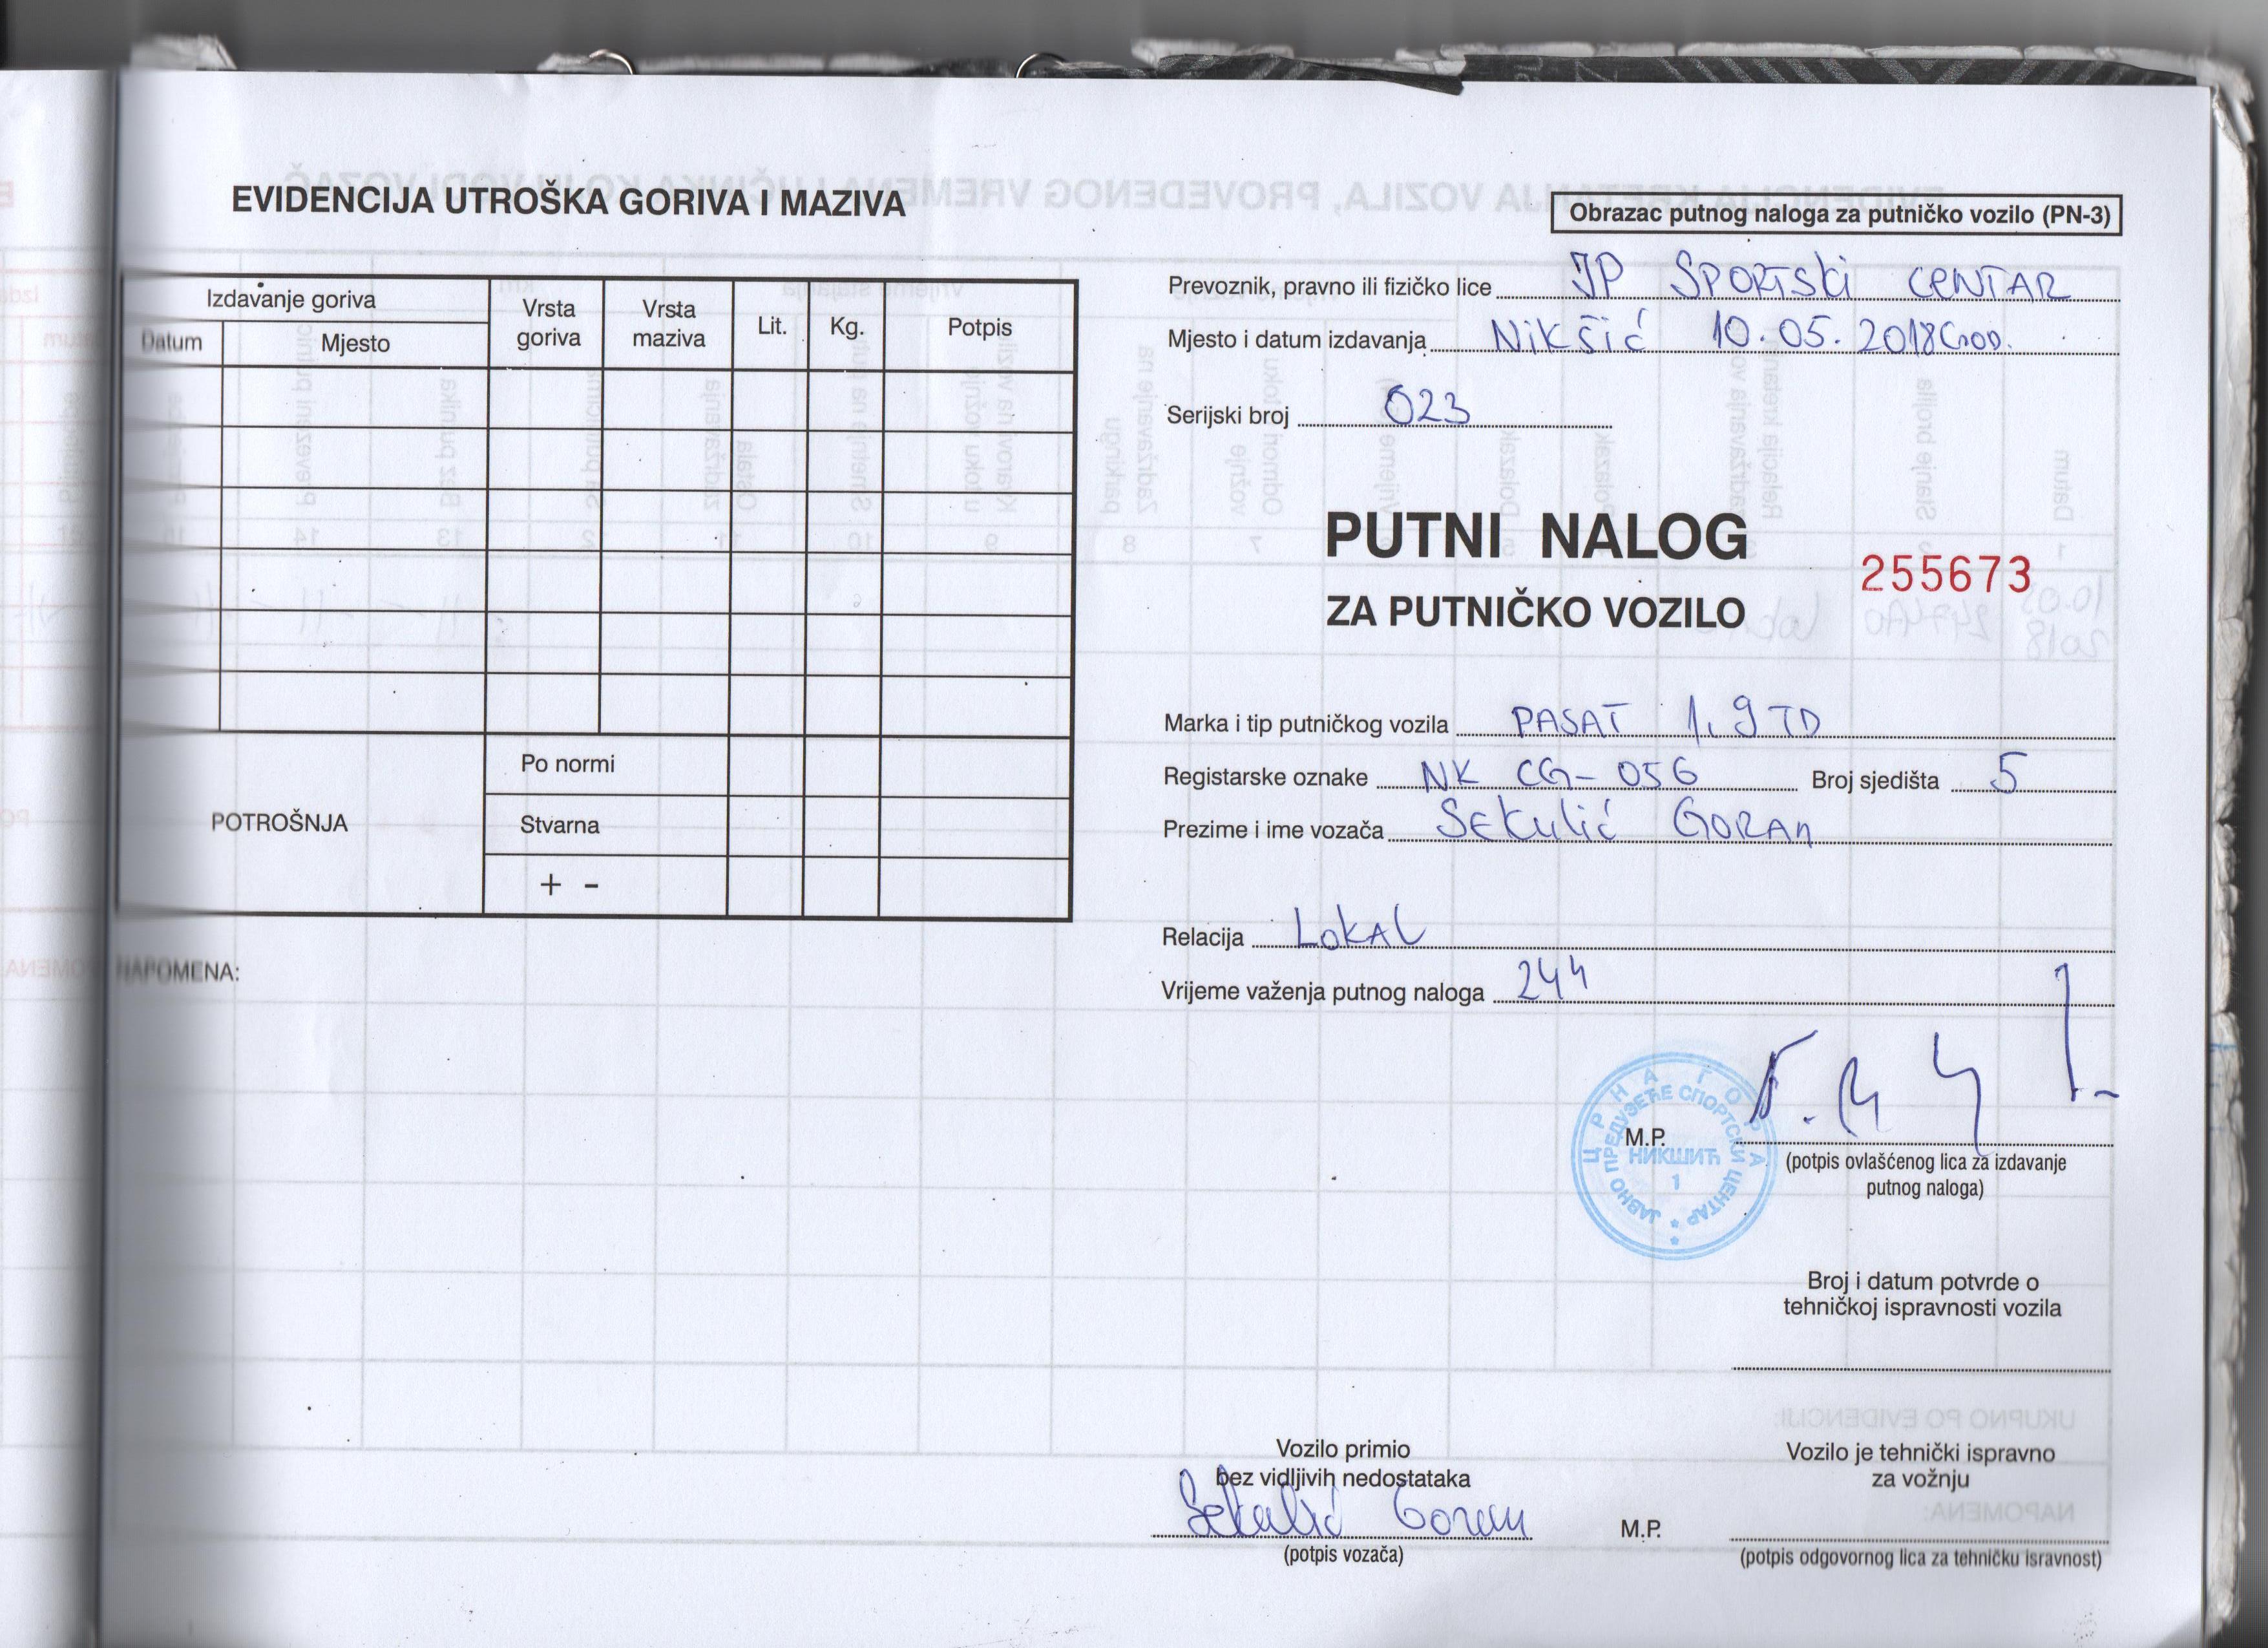 EVIDENCIJA UTROŠKA GORIVA I MAZIVA
Izdavanje goriva
Datum
Mjesto
Vrsta goriva
Vrsta maziva
Lit.
Kg.
Potpis
POTROŠNJA
Po normi
Stvarna
+ -
NAPOMENA:
Obrazac putnog naloga za putničko vozilo (PN-3)
Prevoznik, pravno ili fizičko lice JP SPORTSKI CENTAR
Mjesto i datum izdavanja Nikšić 10.05.2018 GOD.
Serijski broj 023
PUTNI NALOG
255673
ZA PUTNIČKO VOZILO
Marka i tip putničkog vozila PASAT 1.9 TD
Registarske oznake NK CG-056 Broj sjedišta 5
Prezime i ime vozača Sekulić GORAN
Relacija LOKAL
Vrijeme važenja putnog naloga 24h
ЦРНА ГОРА
ЈАВНО ПРЕДУЗЕЋЕ СПОРТСКИ ЦЕНТАР
НИКШИЋ
1
M.P.
(potpis ovlašćenog lica za izdavanje
putnog naloga)
Broj i datum potvrde o
tehničkoj ispravnosti vozila
Vozilo primio
bez vidljivih nedostataka
Sekulić Goran
(potpis vozača)
M.P.
Vozilo je tehnički ispravno
za vožnju
(potpis odgovornog lica za tehničku isravnost)